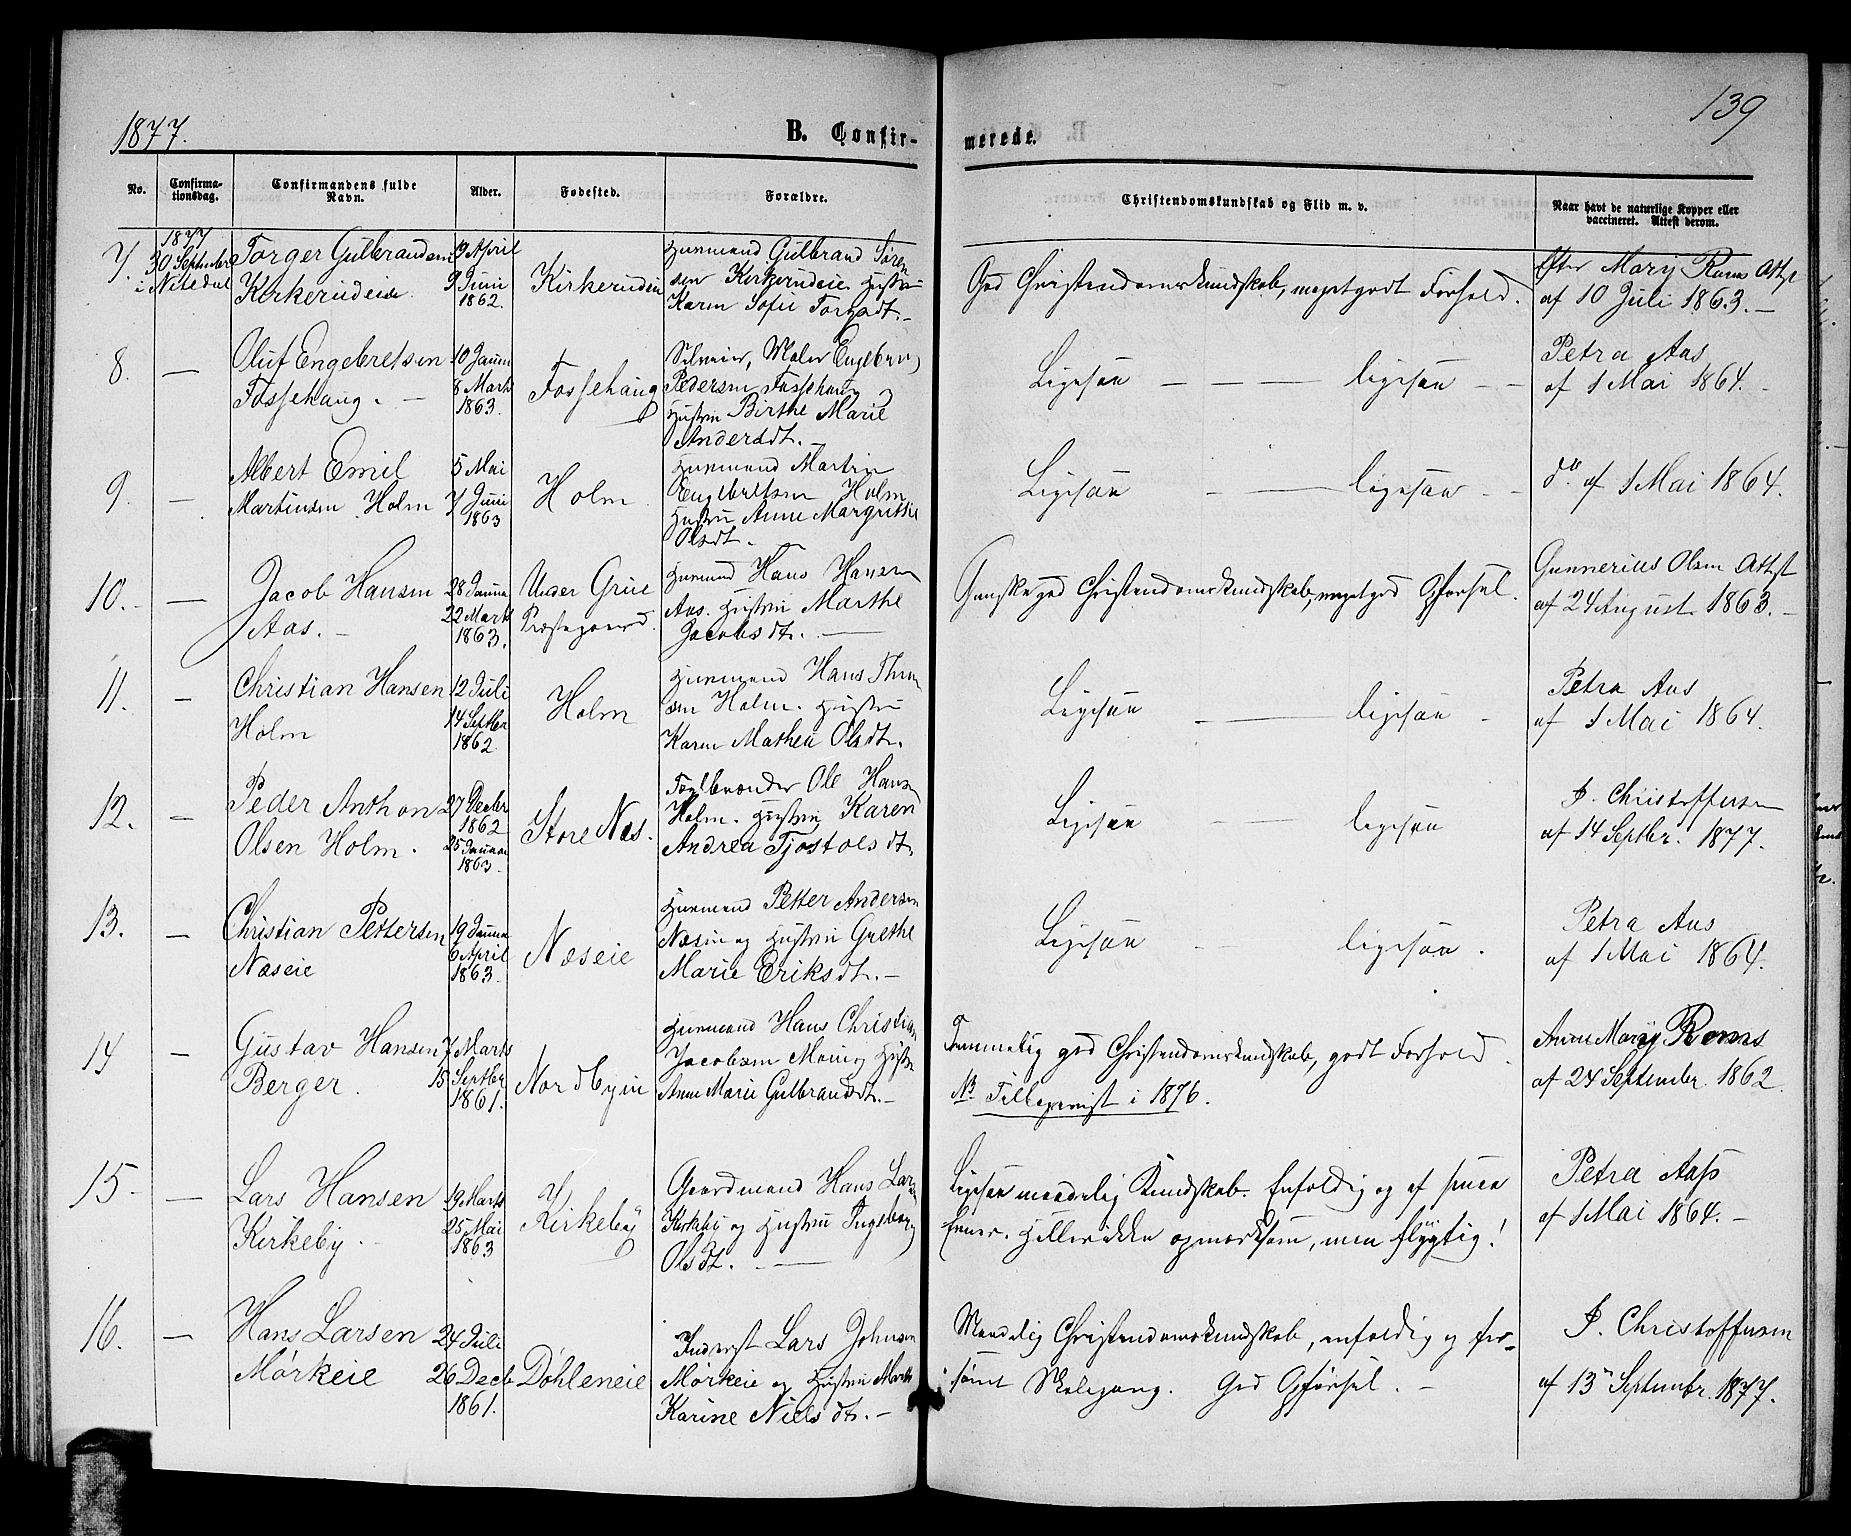 1877.
B. Confir-
merede.
139
No.
Confirma-
tionsdag.
Confirmandens fulde
Navn.
Alder.
Fødested.
Forældre.
Christendomskundskab og Flid m. v.
Naar havt de naturlige Kopper eller
vaccineret. Attest derom.
7.
1877
30 September
i Nitedal
Torger Gulbrandsen
Kirkerudeie
19 April
9 Juni
1862.
Kirkerudeie
Huusmand Gulbrand Søren
sen Kirkerudeie Hustru
Karen Sofie Torgsdt. -
God Christendomskundskab, meget godt Forhold.
Efter Mary Rum Attest
af 10 Juli 1863. -
8.
—
Oluf Engebretsen
Fossehaug. -
10 Januar
8 Marts
1863.
Fossehaug
Selveier, Maler Engebret
Pedersen Fossehaug
Hustru Birthe Marie
Andersdt. -
Ligesaa - - — ligesaa - -
Petra Aas
af 1 Mai 1864. -
9.
—
Albert Emil
Martinsen Holm
5 Mai
7 Juni
1863
Holm
Huusmand Martin
Engebretsen Holm
Hustru Anne Margrethe
Olsdt. -
Ligesaa - — ligesaa - -
do. af 1 Mai 1864.
10. -
—
Jacob Hansen
Aas. -
28 Januar
22 Marts
1863.
Under Grue
Præstegaard.
Huusmand Hans Hansen
Aas. Hustru Marthe
Jacobsdt. —
Ganske god Christendomskundskab, meget god Opførsel.
Gunnerius Olsen Attest
af 24 August 1863. -
11.
-
Christian Hansen
Holm
12 Juli
14 Septbr
1862.
Holm
Huusmand Hans Thor
sen Holm. Hustru
Karen Mathea Olsdt.
Ligesaa - — ligesaa -
Petra Aas
af 1 Mai 1864.
12.
-
Peder Anthon
Olsen Holm.
27 Decbr
1862
25 Januar
1863.
Store Næs.
Teglbrænder Ole Hansen
Holm. Hustru Karen
Andrea Tjostolsdt.
Ligesaa - — ligesaa
P. Christoffersen
af 14 Septbr. 1877.
13.
—
Christian Pettersen
Næseie
19 Januar
6 April
1863.
Næseie
Huusmand Petter Andersen
Næseie og Hustru Grethe
Marie Eriksdt. -
Ligesaa - ligesaa.
Petra Aas
af 1 Mai 1864.
14
-
Gustav Hansen
Berger.
7 Marts
15 Septbr
1861.
Nordbyeie
Huusmand Hans Christian
Jacobsen Moen og Hustru
Anne Marie Gulbransdt. -
Temmelig god Christendomskundskab, godt Forhold.
NB Tillagt i 1876.
Anne Mary Rems
af 24 September 1862.
15.
—
Lars Hansen
Kirkeby. -
19 Marts
25 Mai
1863
Kirkeby
Gaardmand Hans Lars
Kirkeby og Hustru Ingeborg
Olsdt. —
Ligesaa maadelig Kundskab. Enfoldig og af svage
Evner. Heller ikke opmærksom, men flygtig!
Petra Aas
af 1 Mai 1864. -
16.
—
Hans Larsen
Mørkeie
24 Juli
26 Decb
1861.
Døhleneie
Inderst Lars Johnsen
Mørkeie og Hustru Marthe
Karine Nielsdt. -
Maadelig Christendomskundskab, enfoldig og for-
sømt Skolegang. God Opførsel. -
P. Christoffersen
af 13 Septembr. 1877.